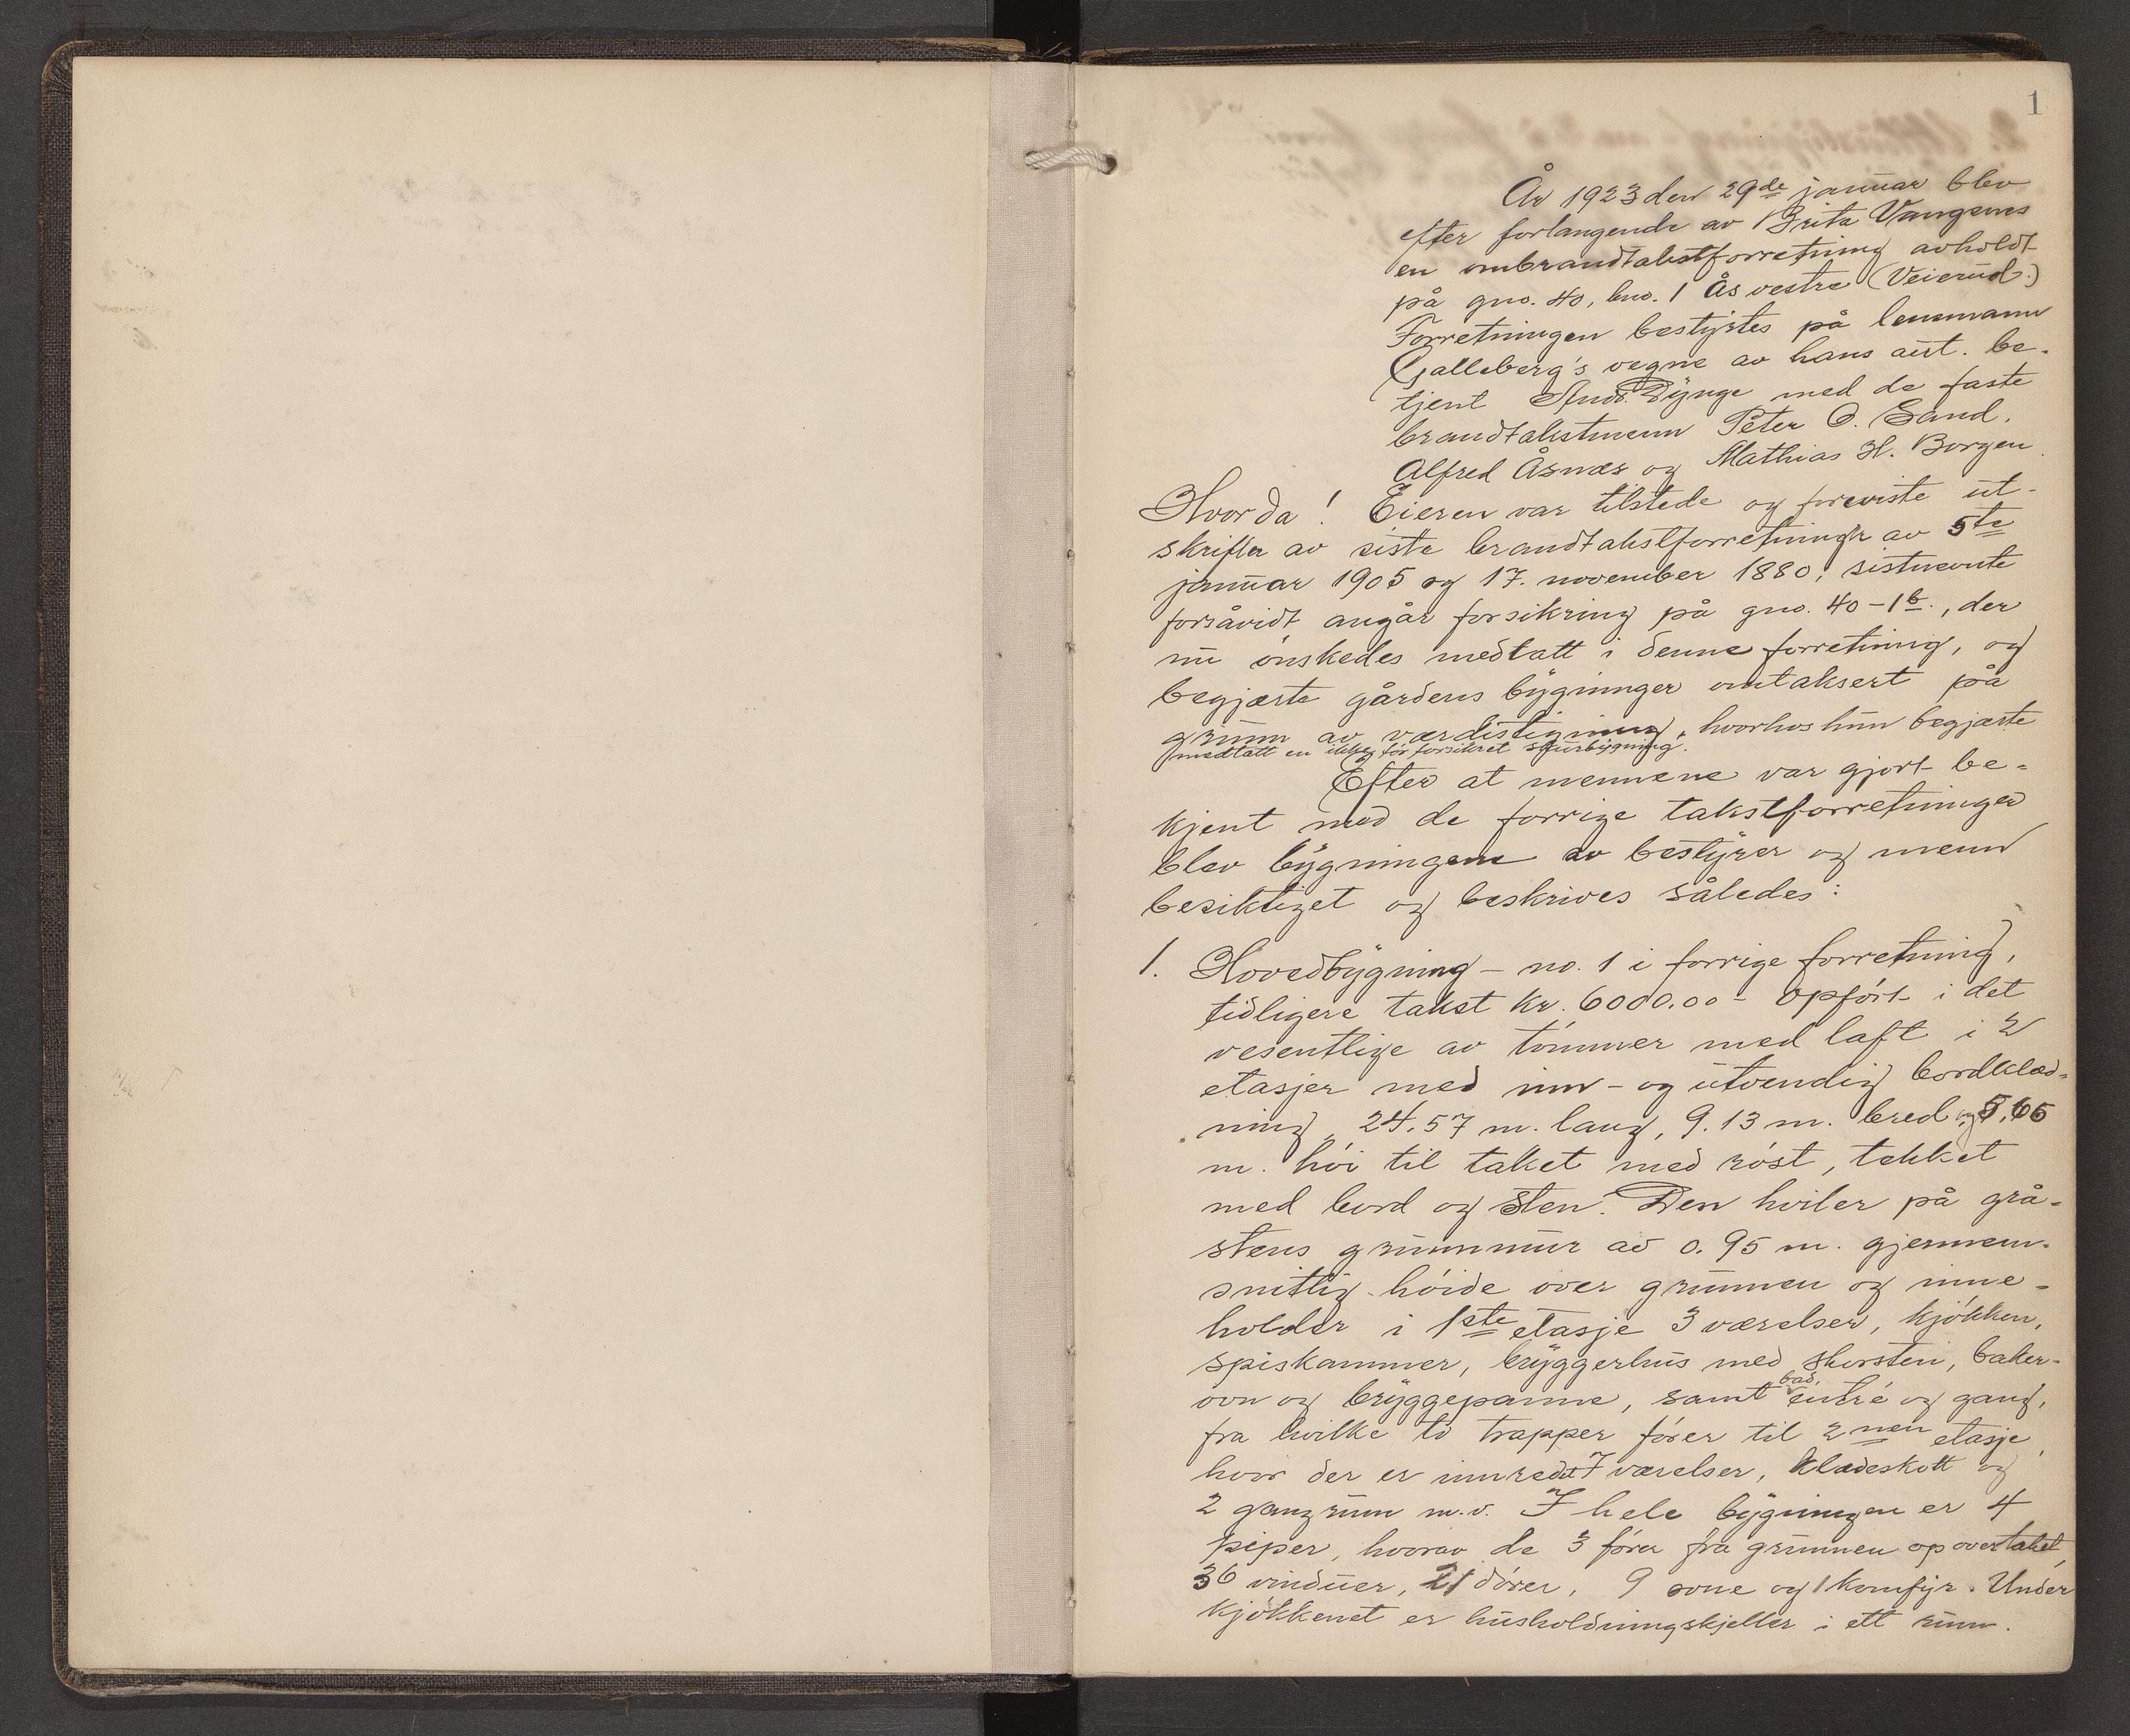 1
År 1923 den 29de januar blev
efter forlangende av Brita Vangsnes
en ombrandtakstforretning avholdt
på gno. 40, bno. 1 Ås vestre (Veierud.)
Forretningen bestyrtes på lensmann
Galleberg's vegne av hans aut. be-
tjent Dynge med de faste
brandtakstmenn Peter O. Sand,
Alfred Åsnæs og Mathias H. Borgen.
Hvorda! Eieren var tilstede og foreviste ut-
skrifter av siste brandtakstforretninger av 5te
januar 1905 og 17. november 1880, sistnevnte
forsåvidt angår forsikring på gno. 40-1b., der
nu ønskedes medtatt i denne forretning, og
begjærte gårdens bygninger omtaksert på
grunn av værdistigning, hvorhos hun begjærte
medtatt en ikke før forsikret
Efter at mennene var gjort be-
kjent med de forrige takstforretninger
blev bygningene av bestyrer og menn
besiktiget og beskrives således:
1. Hovedbygning - no. 1 i forrige forretning,
tidligere takst kr. 6000.00 - opført i det
vesentlige av tømmer med laft i 2
etasjer med inn- og utvendig bordklæd-
ning, 24.57 m. lang, 9.13 m. bred og 5,65
m. høi til taket med røst, tekket
med bord og sten. Den hviler på grå-
stens grunnmur av 0.95 m. gjennem-
snitlig høide over grunnen og inne-
holder i 1ste etasje 3 værelser, kjøkken,
spiskammer, bryggerhus med skorsten, baker-
ovn og bryggepanne, samt bad, entré og gang,
fra hvilke to trapper fører til 2nen etasje,
hvor der er innredet 7 værelser, klædeskott og
2 gangrum m.v. I hele bygningen er 4
piper, hvorav de 3 fører fra grunnen op over taket,
36 vinduer, 21 dører, 9 ovne og 1 komfyr. Under
kjøkkenet er husholdningskjeller i ett rum.